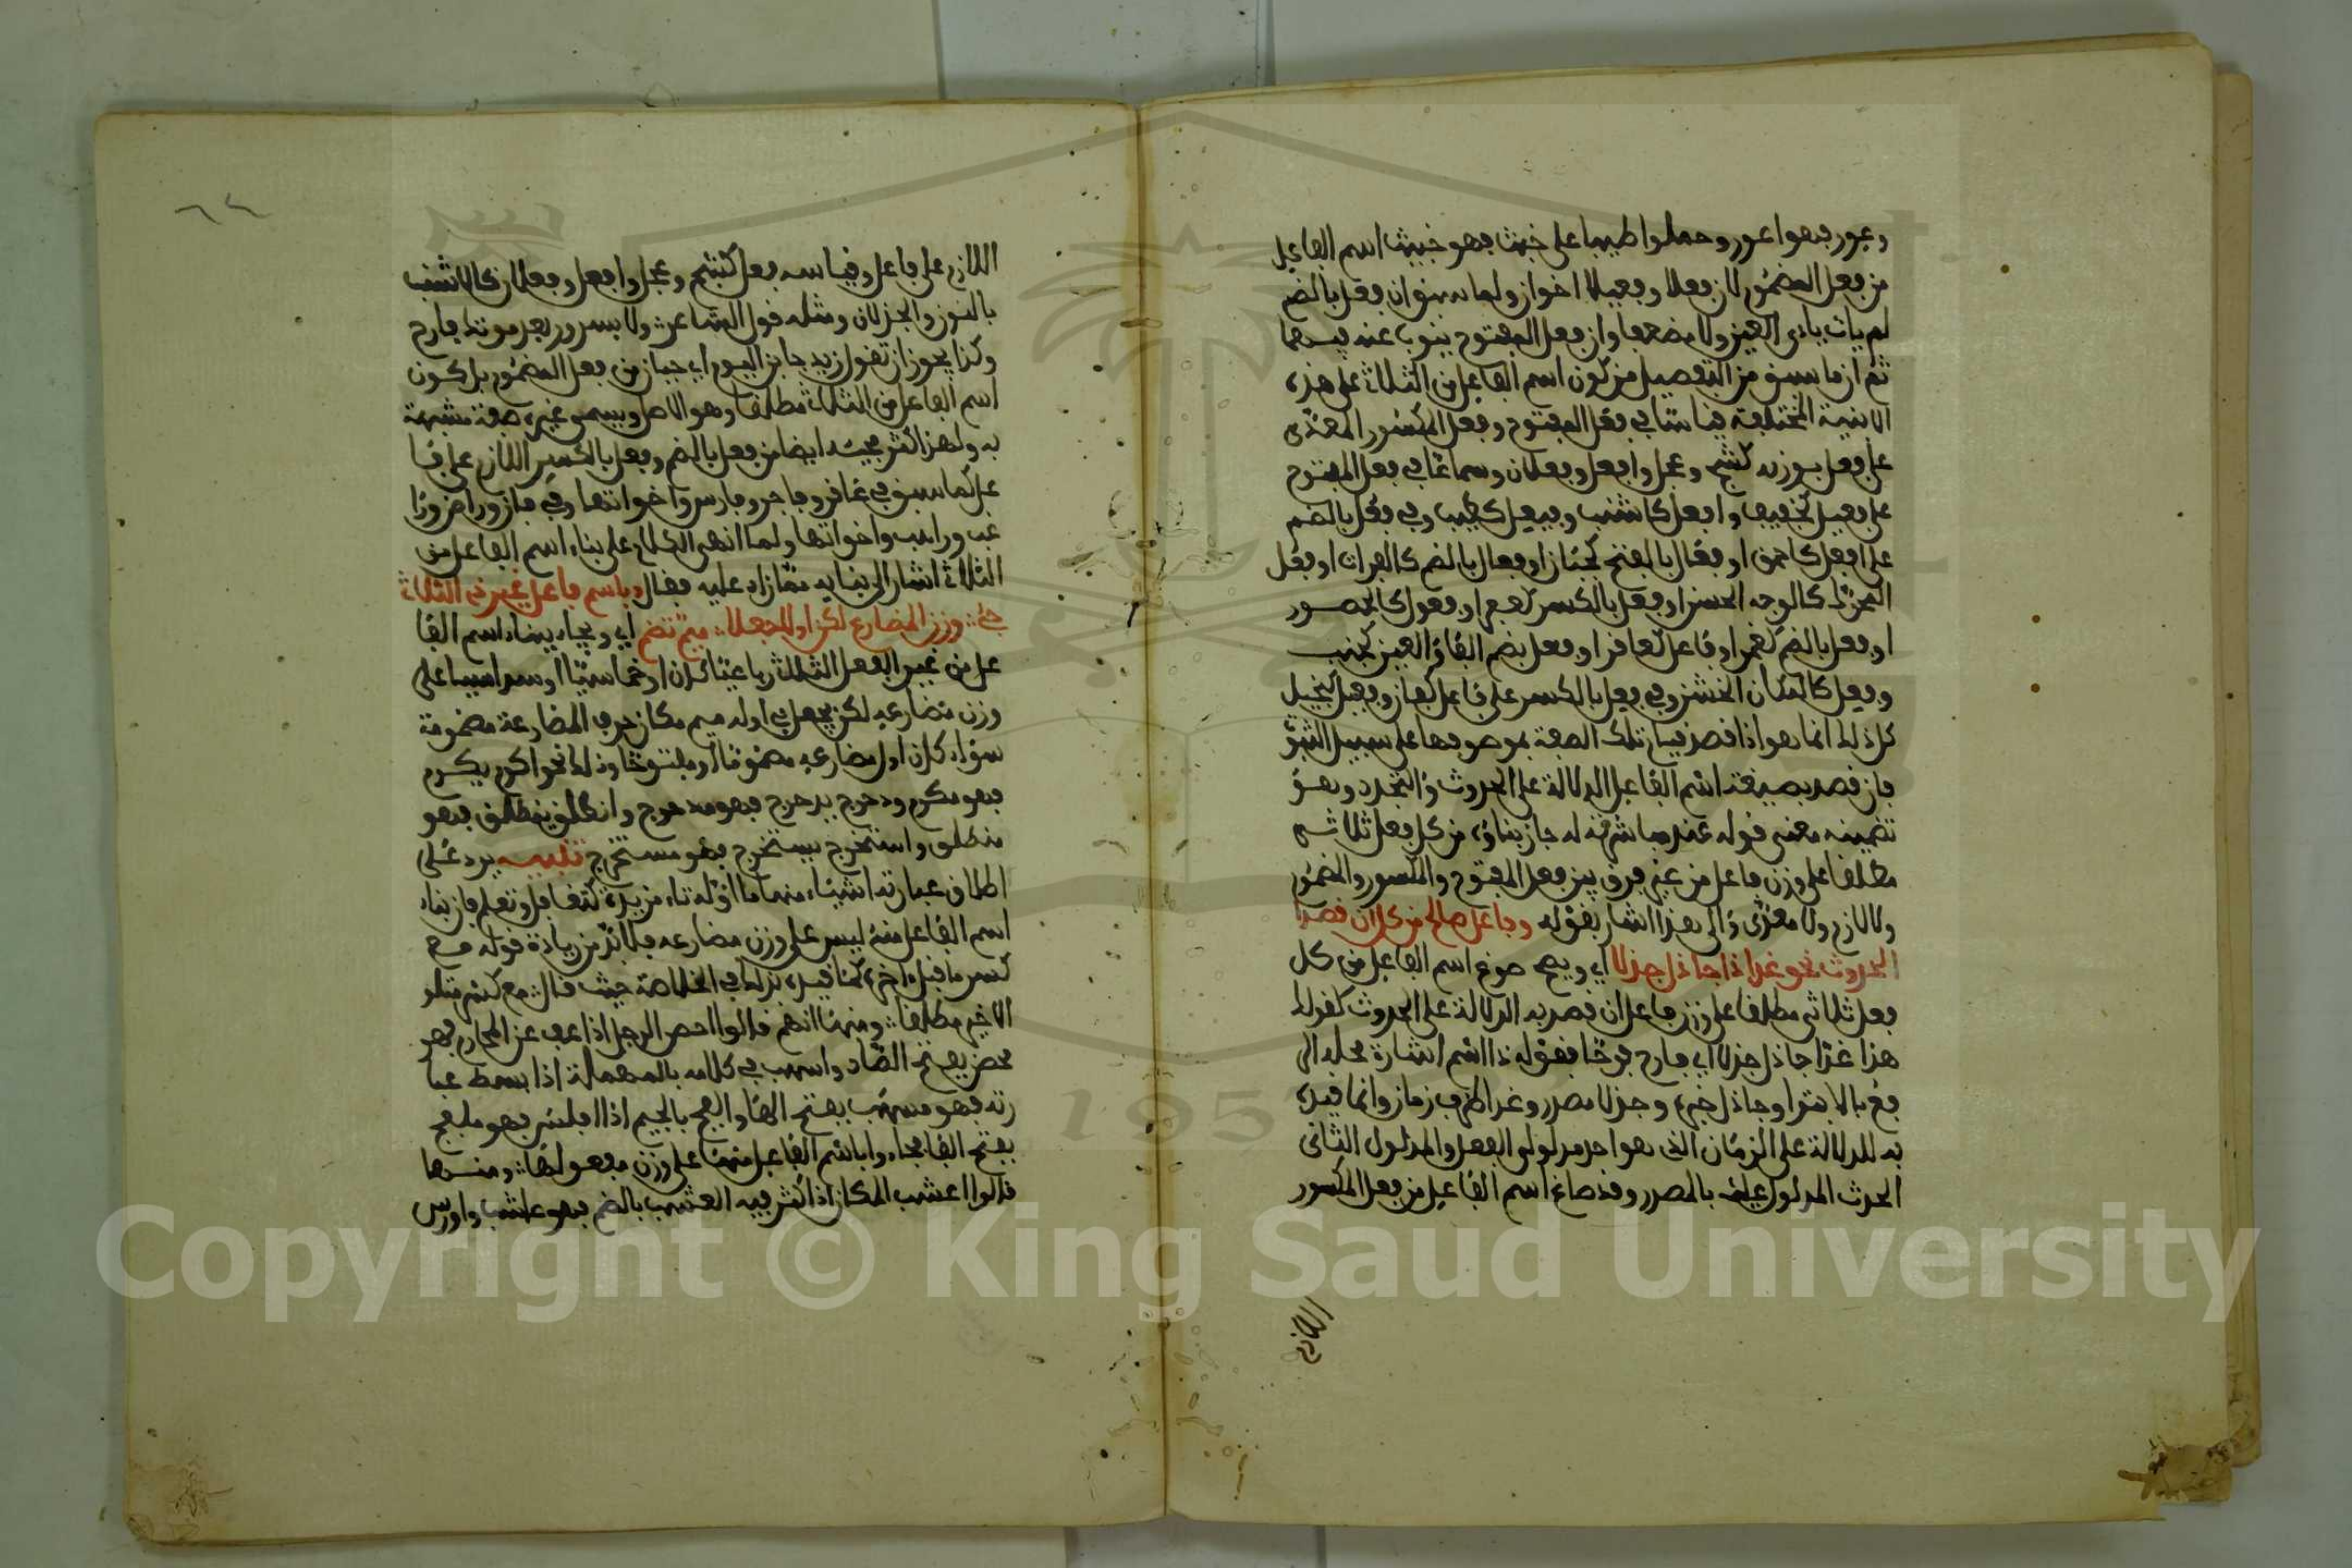 وعور فهو اعور وحملوا طيبا على خبث فهو خبيث اسم الفاعل
من فعل المضموم لان فعلا وفعيلا اخوان ولما سبق ان فعل بالضم
لم يات يائى العين ولا مضعفا وان فعل المفتوح ينوب عنه فيهما
ثم ان ما سبق من التفصيل من كون اسم الفاعل من الثلاث على هذه
الابنية المختلفة قياسا في فعل المفتوح وفعل المكسور المعدى
على فعل بوزنه كشج وعجل وافعل وفعلان وسماعا في فعل المفتوح
على فعيل كخفيف وافعل كاشنب وفيعل كطيب وفي فعل بالضم
على افعل كاحمق او فعال بالفتح كجبان او فعال بالضم كالفرات او فعل
المحرك كالوجه الحسن او فعل بالكسر كعفر او فعول كالحصور
او فعل بالضم كغمر او فاعل كعاقر او فعل بضم الفاء والعين كجنب
وفعل كالمكان الخشن وفي فعل بالكسر على فاعل كفان وفعيل كبخيل
كل ذلك انما هو اذا قصد قيام تلك الصفة بموصوفها على سبيل الثبو
فان قصد بصيغة اسم الفاعل الدلالة على الحدوث والتجدد وهو
تضمينه معنى قوله عند مباشرته له جاز بناؤه من كل فعل ثلاثى
مطلقا على وزن فاعل من غير فرق بين فعل المفتوح والمكسور والمضموم
ولا لازم ولا معدى والى هذا اشار بقوله وفاعل صالح من كل ان قصدا
الحدوث نحو غدا ذا جاذل جذلا اي ويصح صوغ اسم الفاعل من كل
فعل ثلاثى مطلقا على وزن فاعل ان قصد به الدلالة على الحدوث كقولك
هذا غدا جاذل جذلا اي فارح فرحا فقوله ذا اسم اشارة محله الر
فع بالابتدا وجاذل خبره وجذلا مصدر وغدا ظرف زمان وانما قيده
به للدلالة على الزمان الذى هو احد مدلولى الفعل والمدلول الثانى
الحدث المدلول عليه بالمصدر وقد صاغ اسم الفاعل من فعل المكسور
اللازم
اللازم على فاعل وقياسه فعل كشج وعجل وافعل وفعلان كالاشنب
بالنون والجذلان ومثله قول الشاعر ولا بسرور بعد موتك فارح
وكذا يجوز ان تقول زيد جابن اليوم اي جبان من فعل المضموم بل كون
اسم الفاعل من الثلاث مطلقا هو الاصل ويسمى غيره صفة مشبهة
به ولهذا كثر مجيئه ايضا من فعل بالضم وفعل بالكسر اللازم على فا
عل كما سبق في عاقر وفاجر وفارس واخواتها وفي فان وراض ورا
غب وراهب واخواتها ولما انهى الكلام على بناء اسم الفاعل من
الثلاث اشار الى بنايه مما زاد عليه فقال وباسم فاعل غير ذى الثلاث
جئ وزن المضارع لكن اولا جعلا ميم تضم اي ويجاء ببناء اسم الفا
عل من غير الفعل الثلاث رباعيا كان او خماسيا او سداسيا على
وزن مضارعه لكن يجعل في اوله ميم مكان حرف المضارعة مضمومة
سواء كان اول مضارعه مضموما او مفتوحا وذلك نحو اكرم يكرم
فهو مكرم ودحرج يدحرج فهو مدحرج وانطلق ينطلق فهو
منطلق واستخرج يستخرج فهو مستخرج تنبيه يرد على
اطلاق عبارته اشياء منها ما اوله تاء مزيدة كتغافل وتعلم فان بناء
اسم الفاعل منه ليس على وزن مضارعه فلا بد من زيادة قوله مع
كسر ما قبل اخره كما قيده بذلك في الخلاصة حيث قال مع كسر متلو
الاخير مطلقا ومنها انهم قالوا احصن الرجل اذا عف عن المحارم فهو
محصن بفتح الصاد واسهب في كلامه بالمهملة اذا بسط عبا
رته فهو مسهب بفتح الهاء والفج بالجيم اذا افلس فهو ملفج
بفتح الفا فجاءوا باسم الفاعل منها على وزن مفعولها ومنها
قالوا اعشب المكان اذا كثر فيه العشب بالضم فهو عاشب واورس
Copyright © King Saud University
195